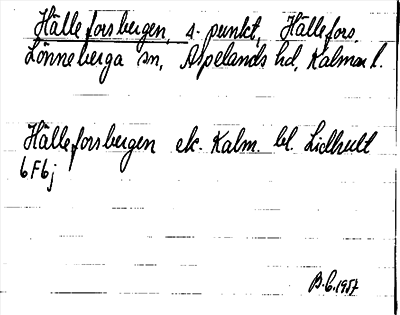 Hälleforsbergen, s. punkt, Hällefors,
Lönneberga sn, Aspelands hd, Kalmar l.
Hälleforsbergen ek. Kalm. bl. Lidhult
6F6j
B.C. 1957